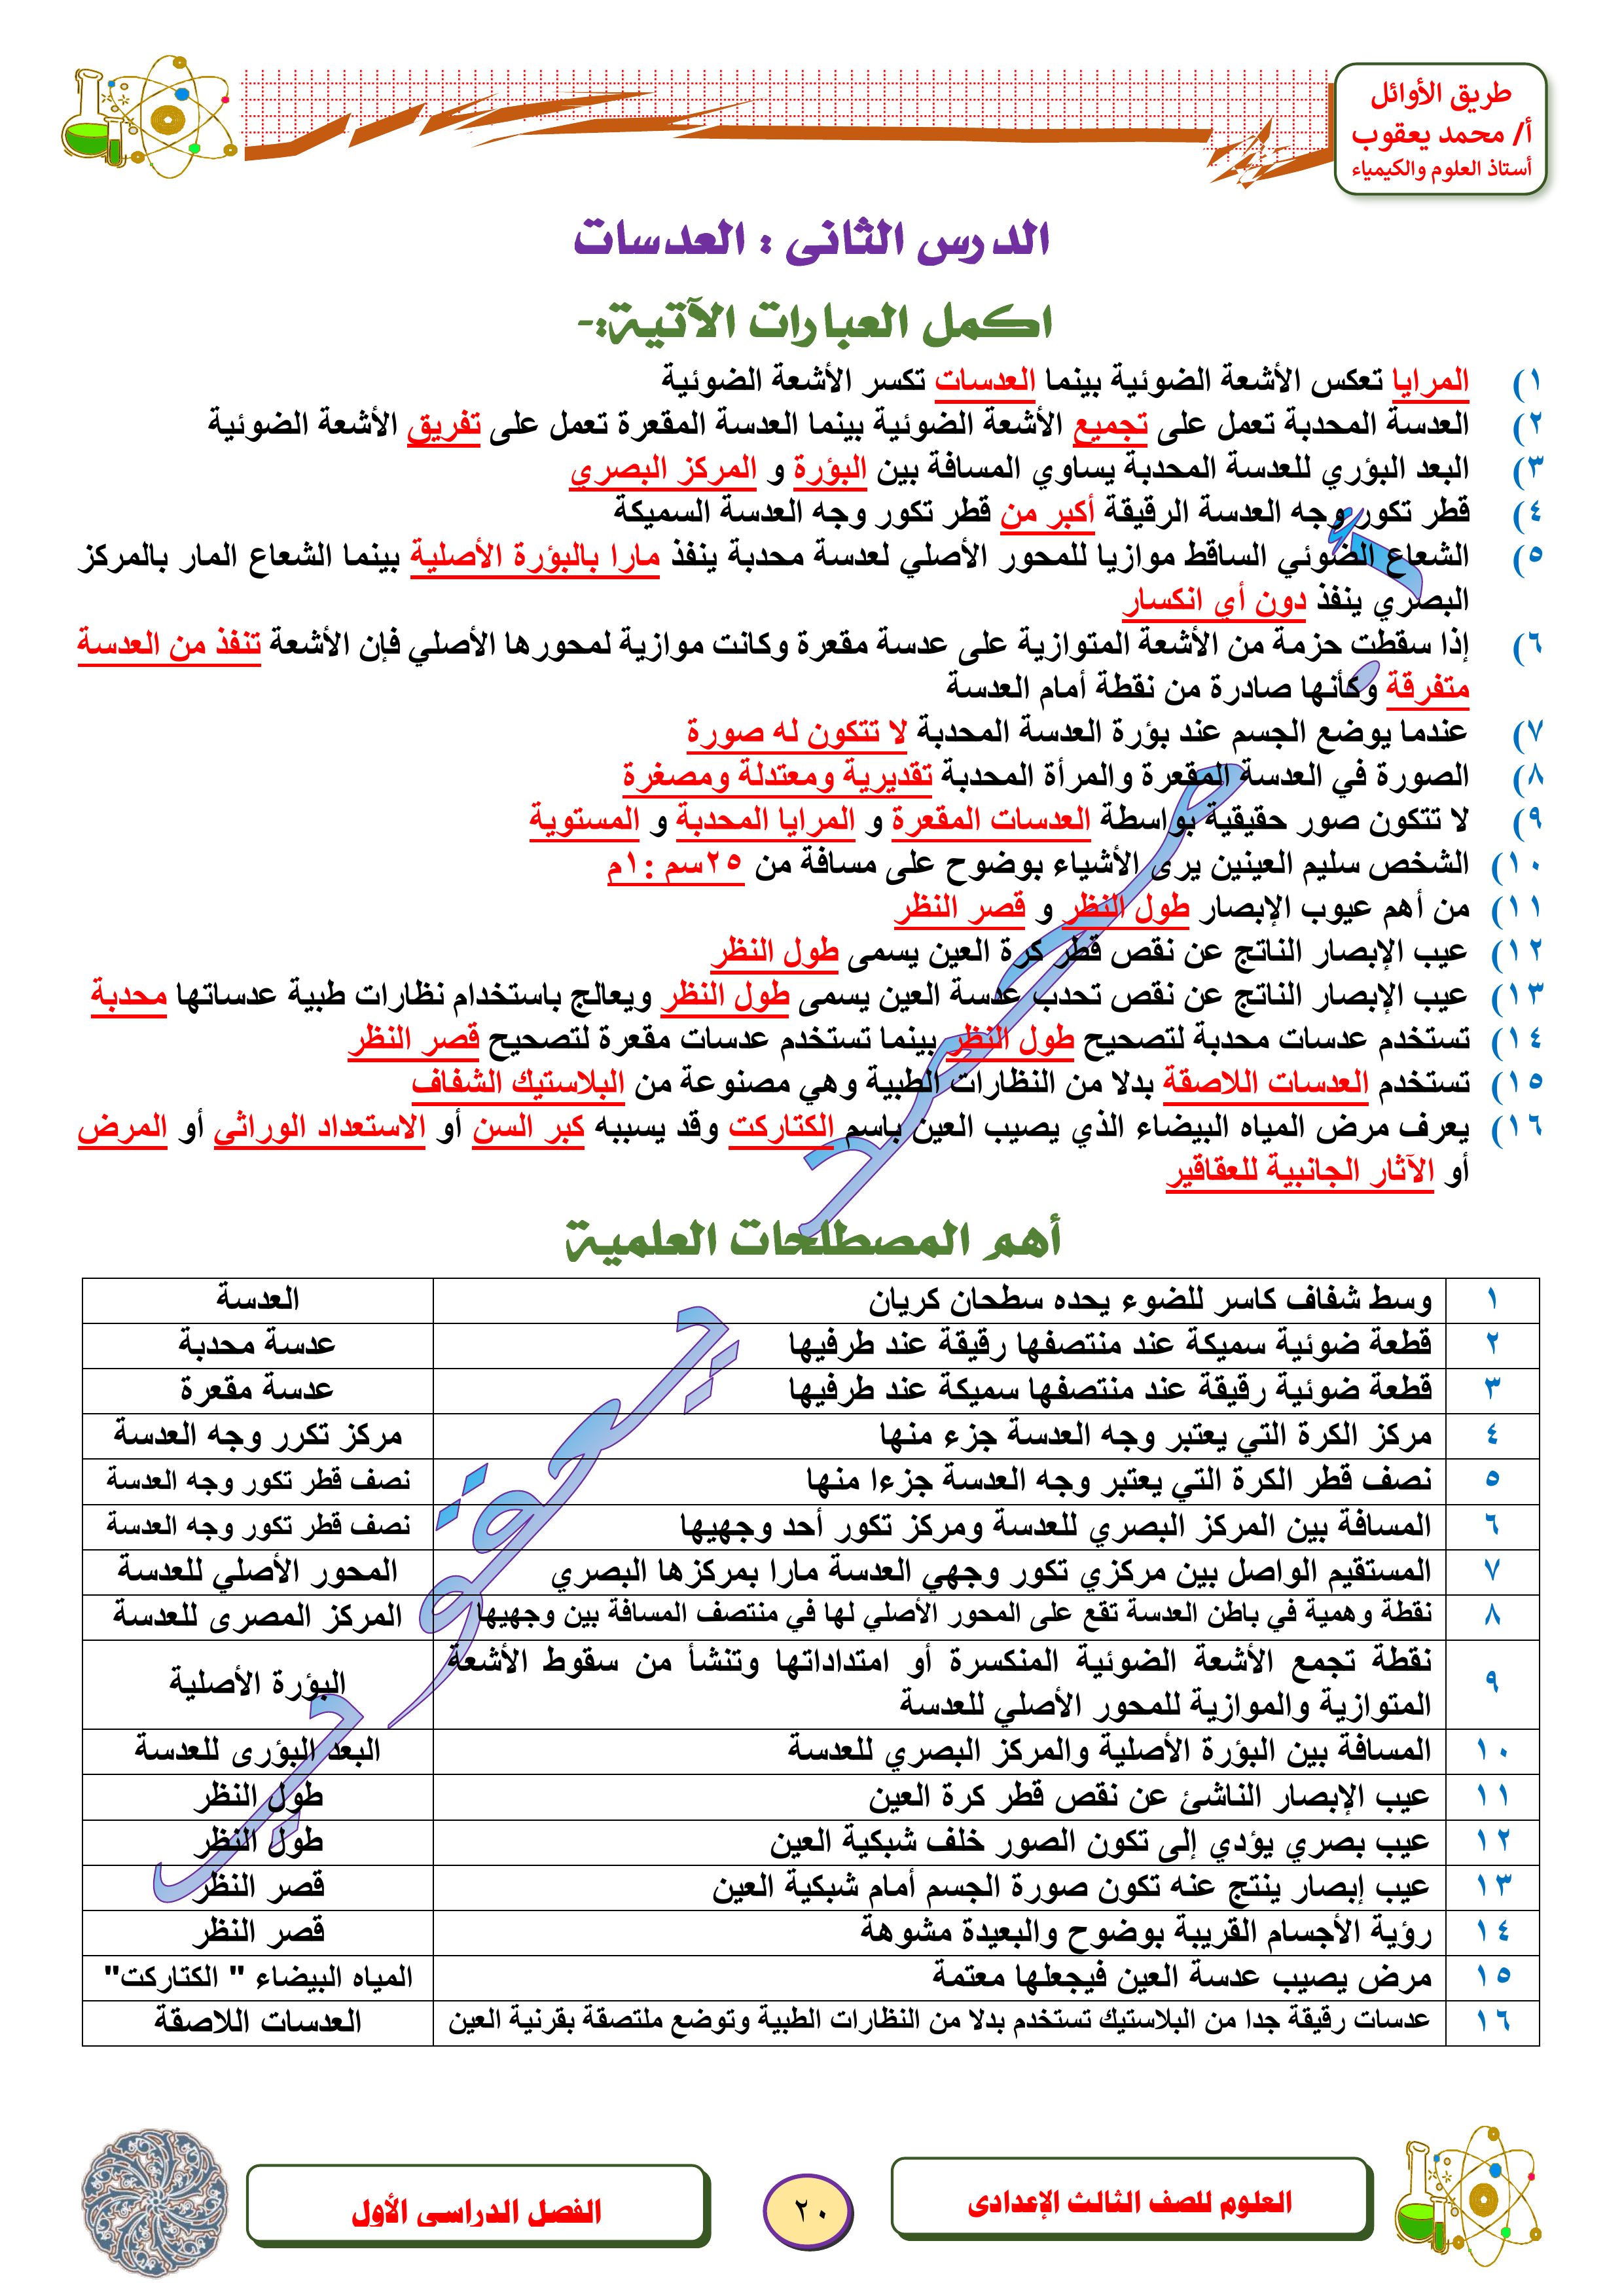 طريق الأوائل
أ/ محمد يعقوب
أستاذ العلوم والكيمياء
الدرس الثانى : العدسات
اكمل العبارات الآتية:-
١) المرايا تعكس الأشعة الضوئية بينما العدسات تكسر الأشعة الضوئية
٢) العدسة المحدبة تعمل على تجميع الأشعة الضوئية بينما العدسة المقعرة تعمل على تفريق الأشعة الضوئية
٣) البعد البؤري للعدسة المحدبة يساوي المسافة بين البؤرة و المركز البصري
٤) قطر تكور وجه العدسة الرقيقة أكبر من قطر تكور وجه العدسة السميكة
٥) الشعاع الضوئي الساقط موازيا للمحور الأصلي لعدسة محدبة ينفذ مارا بالبؤرة الأصلية بينما الشعاع المار بالمركز
البصري ينفذ دون أي انكسار
٦) إذا سقطت حزمة من الأشعة المتوازية على عدسة مقعرة وكانت موازية لمحورها الأصلي فإن الأشعة تنفذ من العدسة
متفرقة وكأنها صادرة من نقطة أمام العدسة
٧) عندما يوضع الجسم عند بؤرة العدسة المحدبة لا تتكون له صورة
٨) الصورة في العدسة المقعرة والمرأة المحدبة تقديرية ومعتدلة ومصغرة
٩) لا تتكون صور حقيقية بواسطة العدسات المقعرة و المرايا المحدبة و المستوية
١٠) الشخص سليم العينين يرى الأشياء بوضوح على مسافة من ٢٥سم :١م
١١) من أهم عيوب الإبصار طول النظر و قصر النظر
١٢) عيب الإبصار الناتج عن نقص قطر كرة العين يسمى طول النظر
١٣) عيب الإبصار الناتج عن نقص تحدب عدسة العين يسمى طول النظر ويعالج باستخدام نظارات طبية عدساتها محدبة
١٤) تستخدم عدسات محدبة لتصحيح طول النظر بينما تستخدم عدسات مقعرة لتصحيح قصر النظر
١٥) تستخدم العدسات اللاصقة بدلا من النظارات الطبية وهي مصنوعة من البلاستيك الشفاف
١٦) يعرف مرض المياه البيضاء الذي يصيب العين باسم الكتاركت وقد يسببه كبر السن أو الاستعداد الوراثي أو المرض
أو الآثار الجانبية للعقاقير
أهم المصطلحات العلمية
١ وسط شفاف كاسر للضوء يحده سطحان كريان العدسة
٢ قطعة ضوئية سميكة عند منتصفها رقيقة عند طرفيها عدسة محدبة
٣ قطعة ضوئية رقيقة عند منتصفها سميكة عند طرفيها عدسة مقعرة
٤ مركز الكرة التي يعتبر وجه العدسة جزء منها مركز تكرر وجه العدسة
٥ نصف قطر الكرة التي يعتبر وجه العدسة جزءا منها نصف قطر تكور وجه العدسة
٦ المسافة بين المركز البصري للعدسة ومركز تكور أحد وجهيها نصف قطر تكور وجه العدسة
٧ المستقيم الواصل بين مركزي تكور وجهي العدسة مارا بمركزها البصري المحور الأصلي للعدسة
٨ نقطة وهمية في باطن العدسة تقع على المحور الأصلي لها في منتصف المسافة بين وجهيها المركز المصرى للعدسة
٩ نقطة تجمع الأشعة الضوئية المنكسرة أو امتداداتها وتنشأ من سقوط الأشعة
المتوازية والموازية للمحور الأصلي للعدسة البؤرة الأصلية
١٠ المسافة بين البؤرة الأصلية والمركز البصري للعدسة البعد البؤرى للعدسة
١١ عيب الإبصار الناشئ عن نقص قطر كرة العين طول النظر
١٢ عيب بصري يؤدي إلى تكون الصور خلف شبكية العين طول النظر
١٣ عيب إبصار ينتج عنه تكون صورة الجسم أمام شبكية العين قصر النظر
١٤ رؤية الأجسام القريبة بوضوح والبعيدة مشوهة قصر النظر
١٥ مرض يصيب عدسة العين فيجعلها معتمة المياه البيضاء " الكتاركت"
١٦ عدسات رقيقة جدا من البلاستيك تستخدم بدلا من النظارات الطبية وتوضع ملتصقة بقرنية العين العدسات اللاصقة
أ. محمد يعقوب
العلوم للصف الثالث الإعدادى
٢٠
الفصل الدراسى الأول